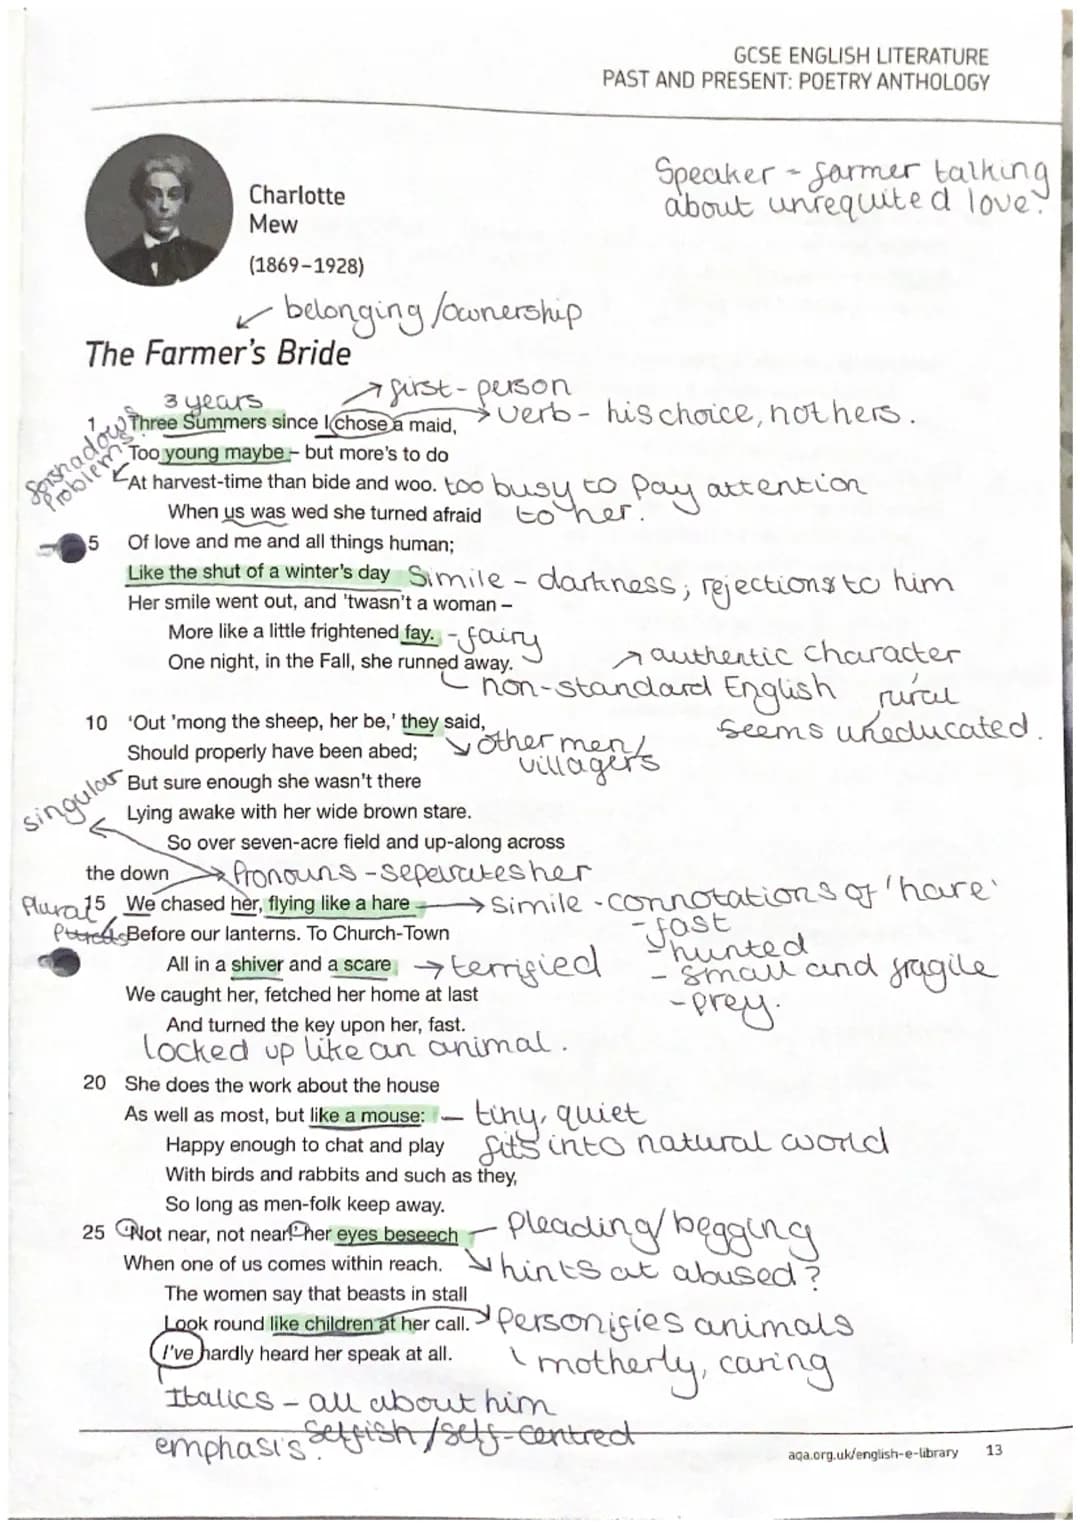 GCSE ENGLISH LITERATURE
PAST AND PRESENT: POETRY ANTHOLOGY
Speaker - farmer talking
about unrequited love.
Charlotte
Mew
(1869–1928)
belonging/ownership
The Farmer's Bride
3 years
first-person
verb - his choice, not hers.
1 Three Summers since I chose a maid,
forshadows
problems
Too young maybe – but more's to do
At harvest-time than bide and woo. too busy to pay attention
to her.
When us was wed she turned afraid
5 Of love and me and all things human;
Like the shut of a winter's day Simile - darkness; rejections to him
Her smile went out, and 'twasn't a woman –
More like a little frightened fay. - fairy
One night, in the Fall, she runned away.
authentic character
non-standard English rural
seems uneducated.
10 'Out 'mong the sheep, her be,' they said,
other men/
villagers
Should properly have been abed;
But sure enough she wasn't there
singular
Lying awake with her wide brown stare.
So over seven-acre field and up-along across
the down
Pronouns - separates her
Plural
15 We chased her, flying like a hare Simile - connotations of 'hare'
- fast
- hunted
- small and fragile
- prey.
Before our lanterns. To Church-Town
All in a shiver and a scare terrified
We caught her, fetched her home at last
And turned the key upon her, fast.
locked up like an animal.
20 She does the work about the house
As well as most, but like a mouse: - tiny, quiet
fits into natural world
Happy enough to chat and play
With birds and rabbits and such as they,
So long as men-folk keep away.
25 'Not near, not near!' her eyes beseech - pleading/begging
hints at abused?
When one of us comes within reach.
The women say that beasts in stall
Look round like children at her call. Personifies animals
motherly, caring
I've hardly heard her speak at all.
Italics - all about him
selfish/self-centred
emphasis.
aqa.org.uk/english-e-library 13